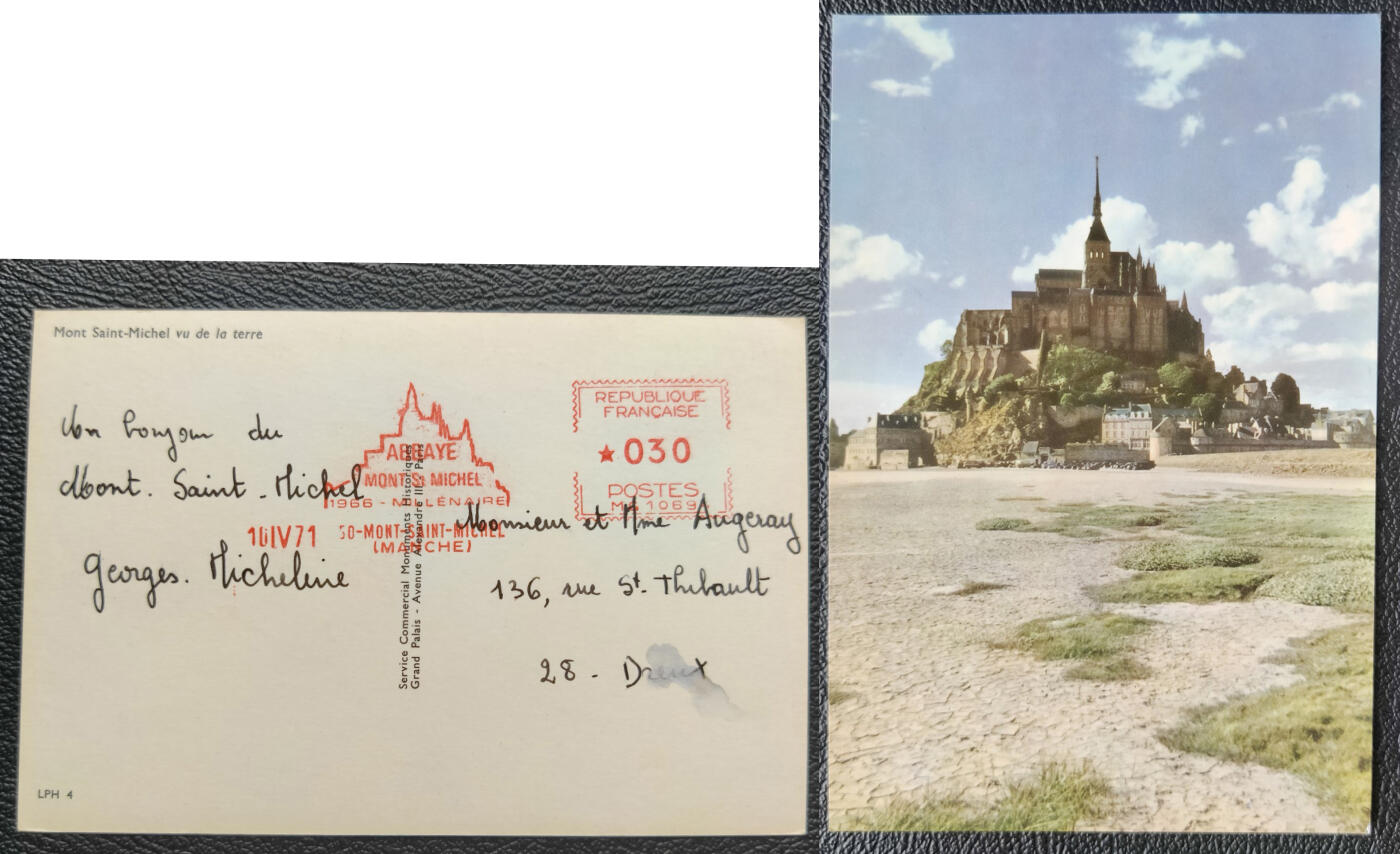 Mont Saint-Michel vu de la terre
Un bonjour du
Mont. Saint-Michel
Georges. Micheline
ABBAYE
MONT St MICHEL
1966 - MILLÉNAIRE
IV71
50-MONT-SAINT-MICHEL
(MANCHE)
REPUBLIQUE
FRANÇAISE
★030
POSTES
1069
Service Commercial Monuments Historiques
Grand Palais - Avenue Alexandre III Paris
Monsieur et Mme Augeray
136, rue St. Thibault
28 - Dreux
LPH 4